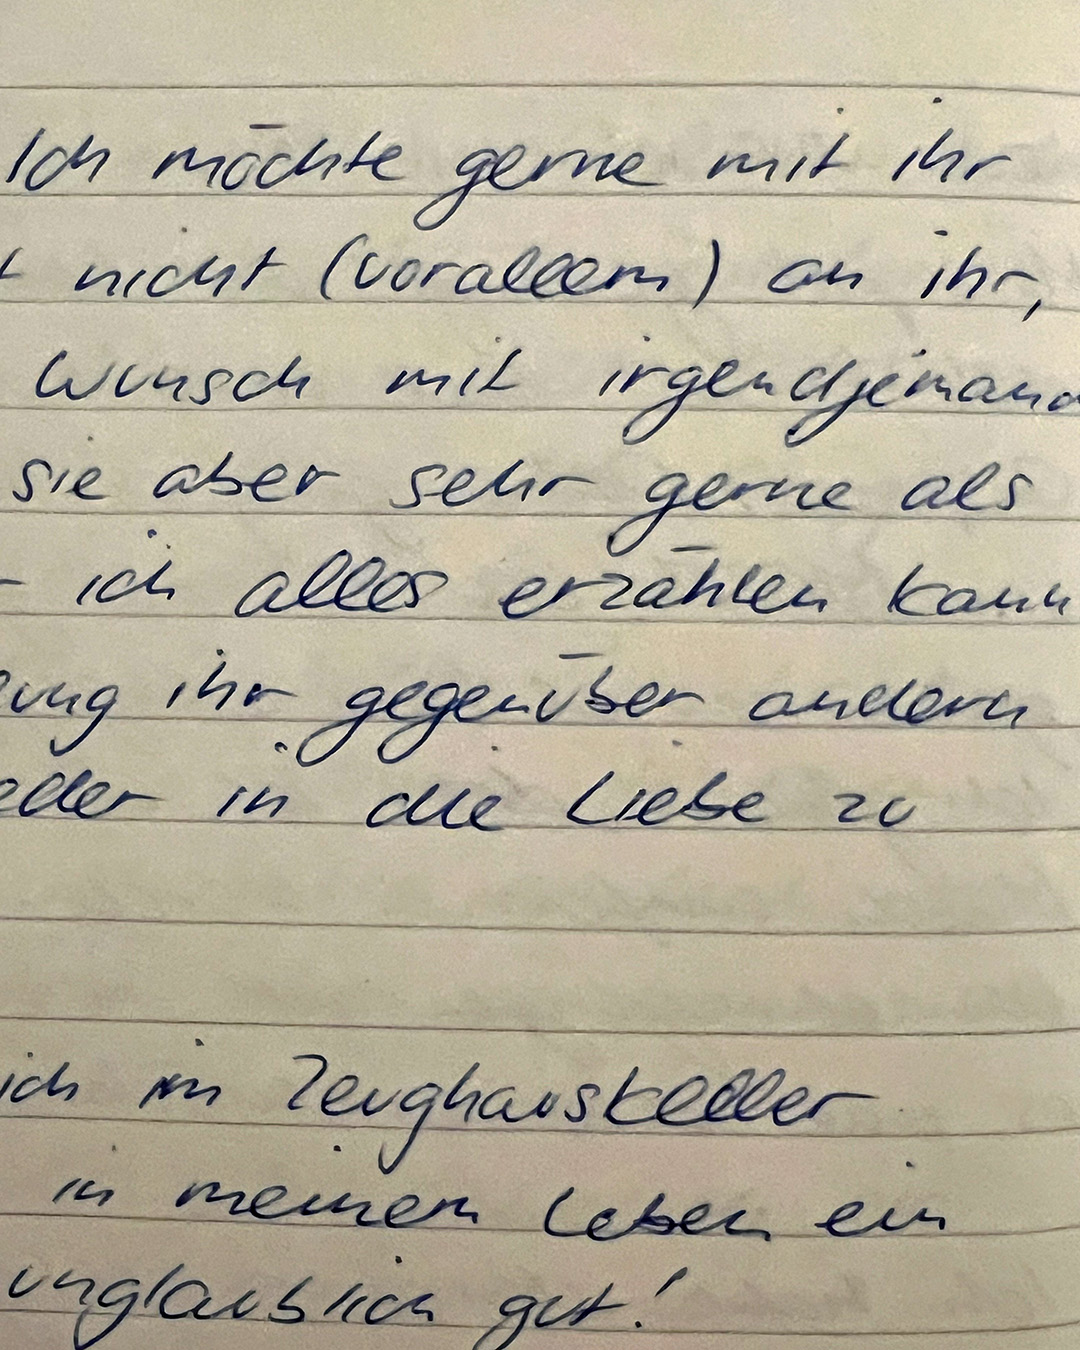 Ich möchte gerne mit ihr
nicht (vorallem) an ihr,
Wunsch mit irgendjemand
sie aber sehr gerne als
ich alles erzählen kann
ihr gegenüber andern
in die Liebe zu
ich im Zeughauskeller
in meinem Leben ein
unglaublich gut!